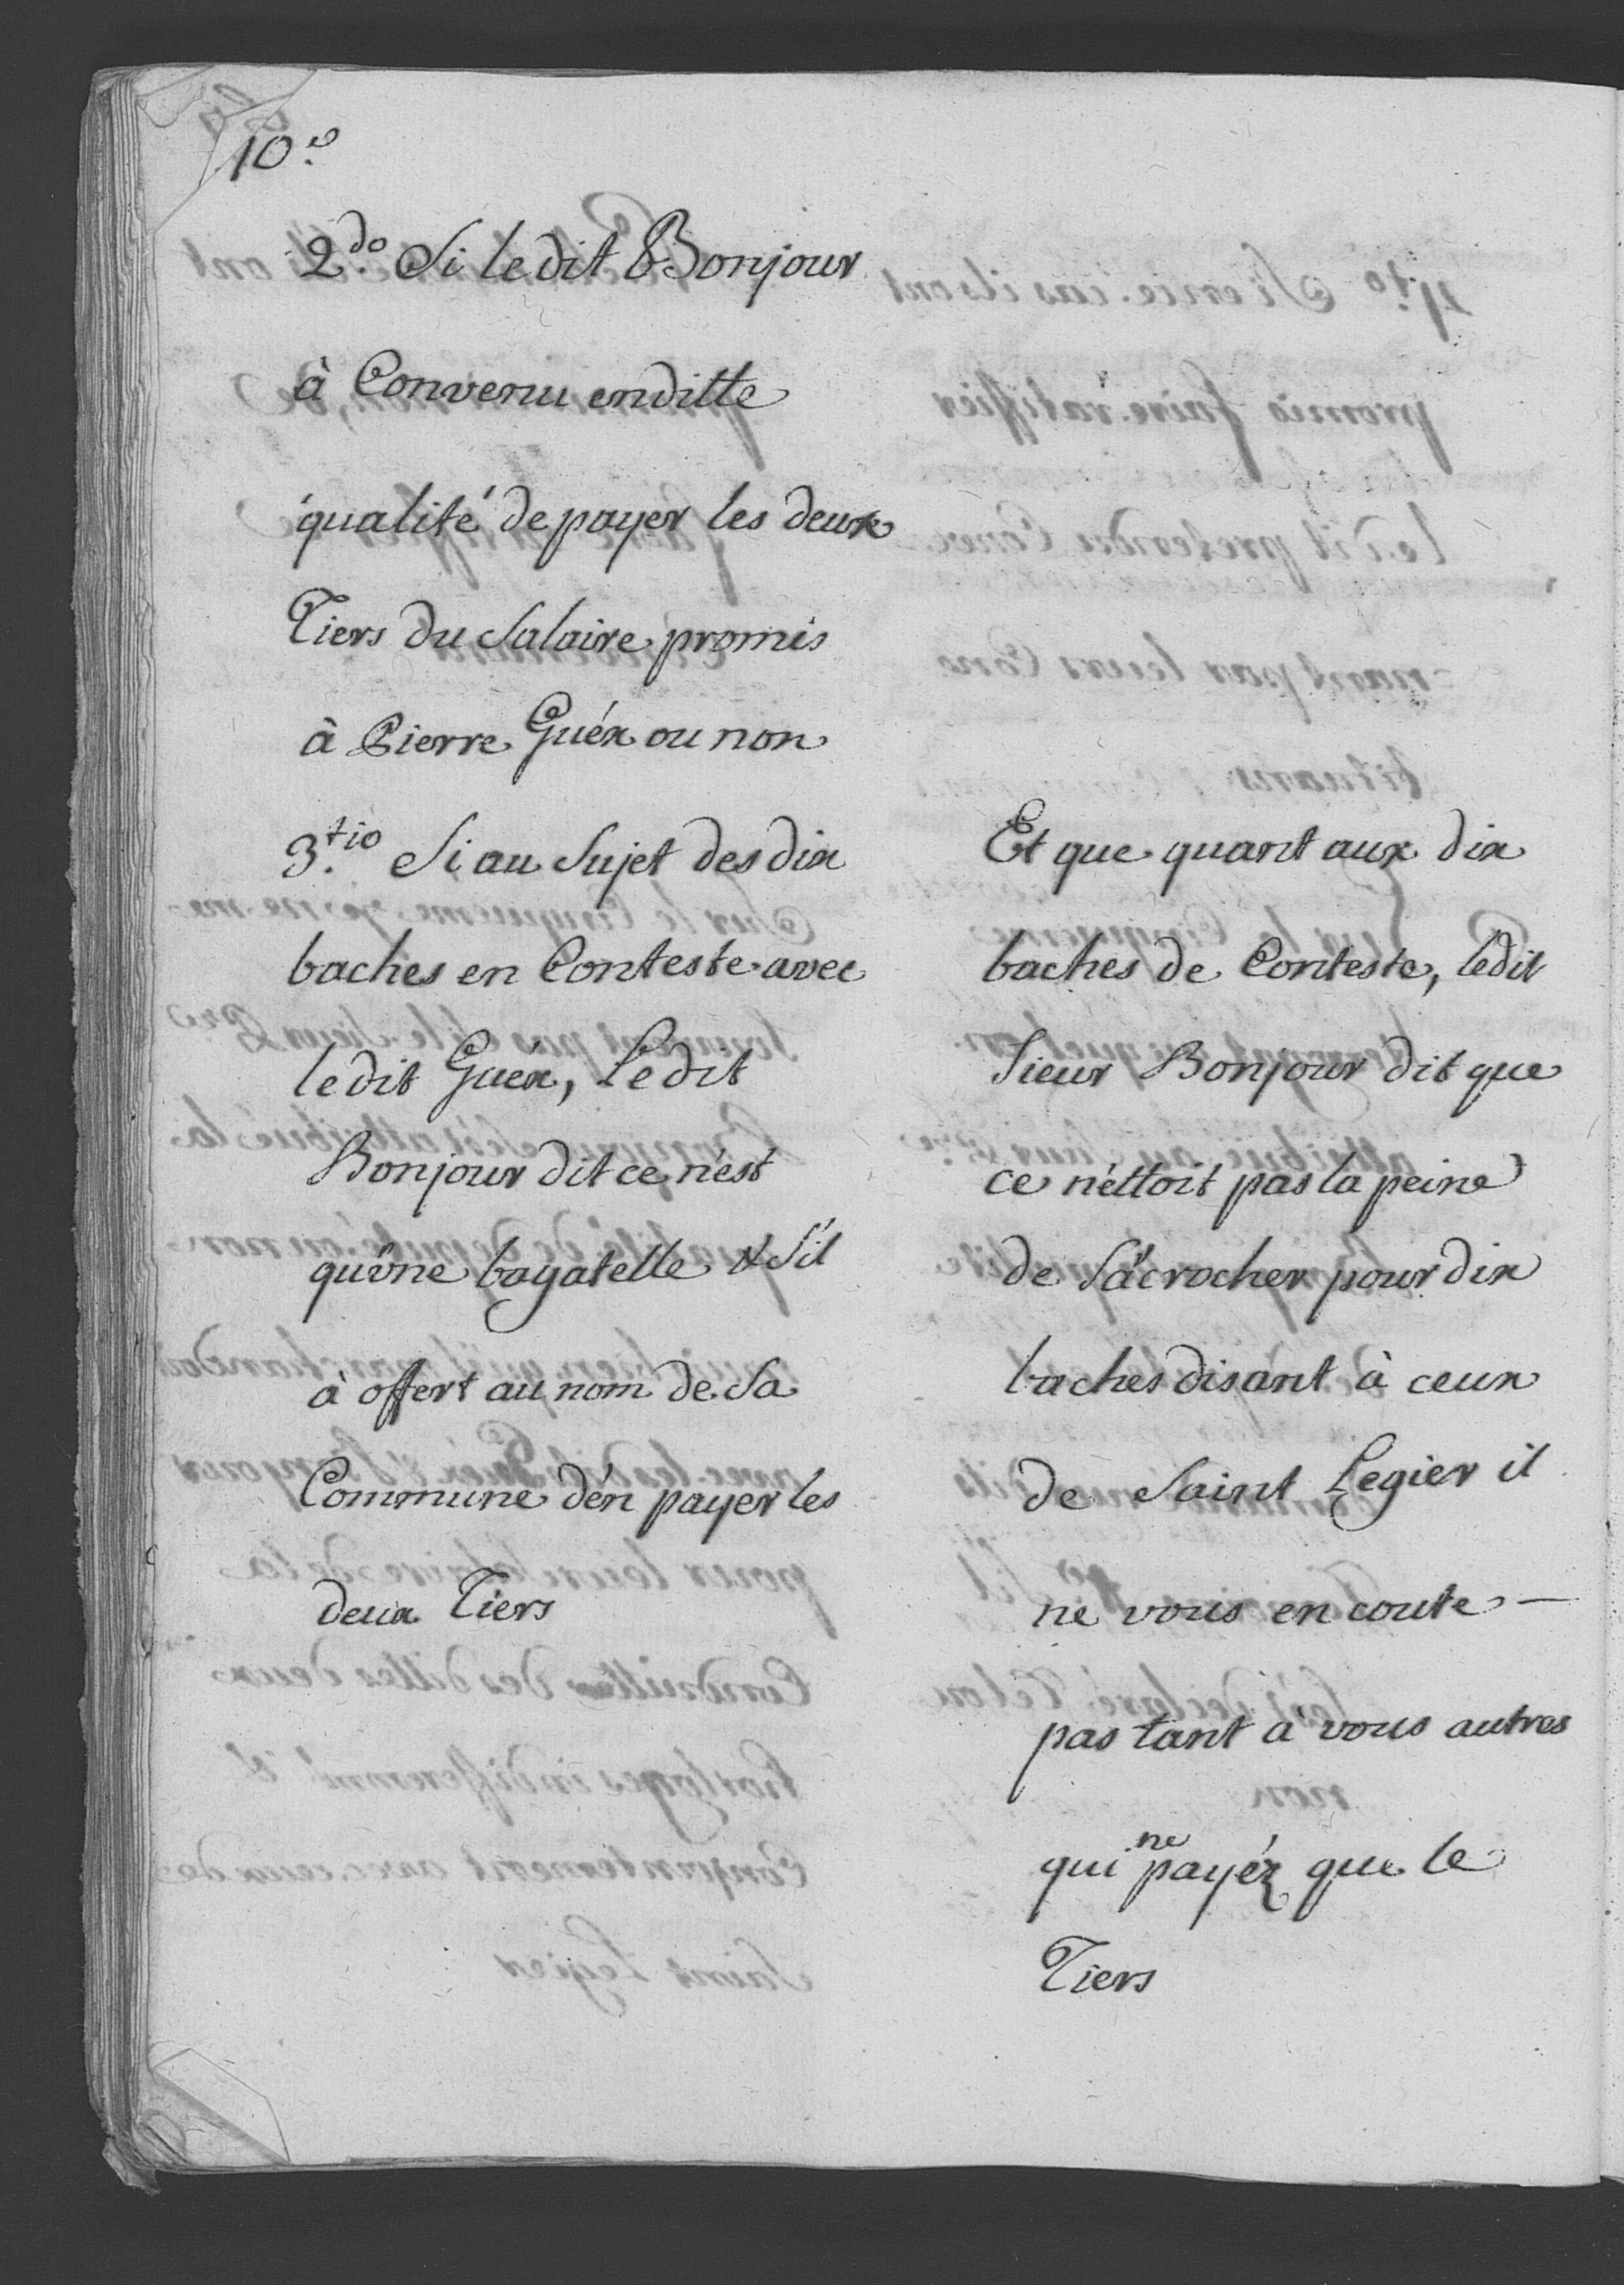 10.e
2.do Si le dit Bonjour
à Convenu en ditte
qualité de payer les deux
Tiers du Salaire promis
à Pierre Guéx ou non
3.tio Si au Sujet des dix
baches en Conteste avec
le dit Guéx, Le dit
Bonjour dit ce n'est
qu'une bagatelle & S'il
à offert au nom de Sa
Commune d'en payer les
deux Tiers
Et que quant aux dix
baches de Conteste, ledit
Sieur Bonjour dit que
ce n'ettoit pas la peine
de S'acrocher pour dix
baches disant à ceux
de Saint Legier il
ne vous en coute —
pas tant à vous autres
qui ne payéz que le
Tiers